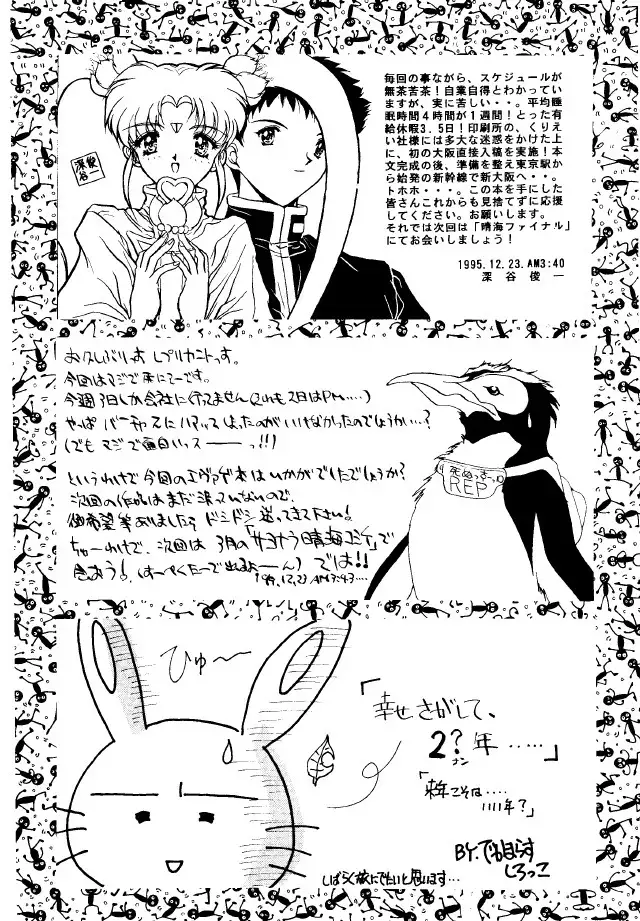 毎回の事ながら、スケジュールが
無茶苦茶！自業自得とわかってい
ますが、実に苦しい・・。平均睡
眠時間4時間が1週間！とった有
給休暇3.5日！印刷所の、くりえ
い社様には多大な迷惑をかけた上
に、初の大阪直接入稿を実施！本
文完成の後、準備を整え東京駅か
ら始発の新幹線で新大阪へ・・。
トホホ・・・。この本を手にした
皆さんこれからも見捨てずに応援
してください。お願いします。
それでは次回は「晴海ファイナル」
にてお会いしましょう！
1995.12.23.AM3:40
深谷俊一
お久しぶりっす レプリカントっす。
今回はマジで死にてーです。
今週3日しか会社に行てません(これも2日はPM.....)
やっぱ バーチャ2にハマッてしまったのがいけなかったのでしょうかい…?
(でも マジで面白いッス――っ!!)
というわけで今回のエヴァゲ本はいかがでしたでしょうか?
次回の作品はまだ決っていないので、
御希望等ありましたら ドシドシ送ってきて下さい!
ちゅーわけで、次回は 3月の「サヨナラ晴海コミケ」で
会おう! (はーぺくたーで出るよーん) では!!
死ぬっすっ
REP
ひゅ〜〜
「幸せさがして、
2?年……」
ナン
「来年こそは....
1111年?」
BY.でるまらす
しろっこ
しばらく旅にでたいと思います…